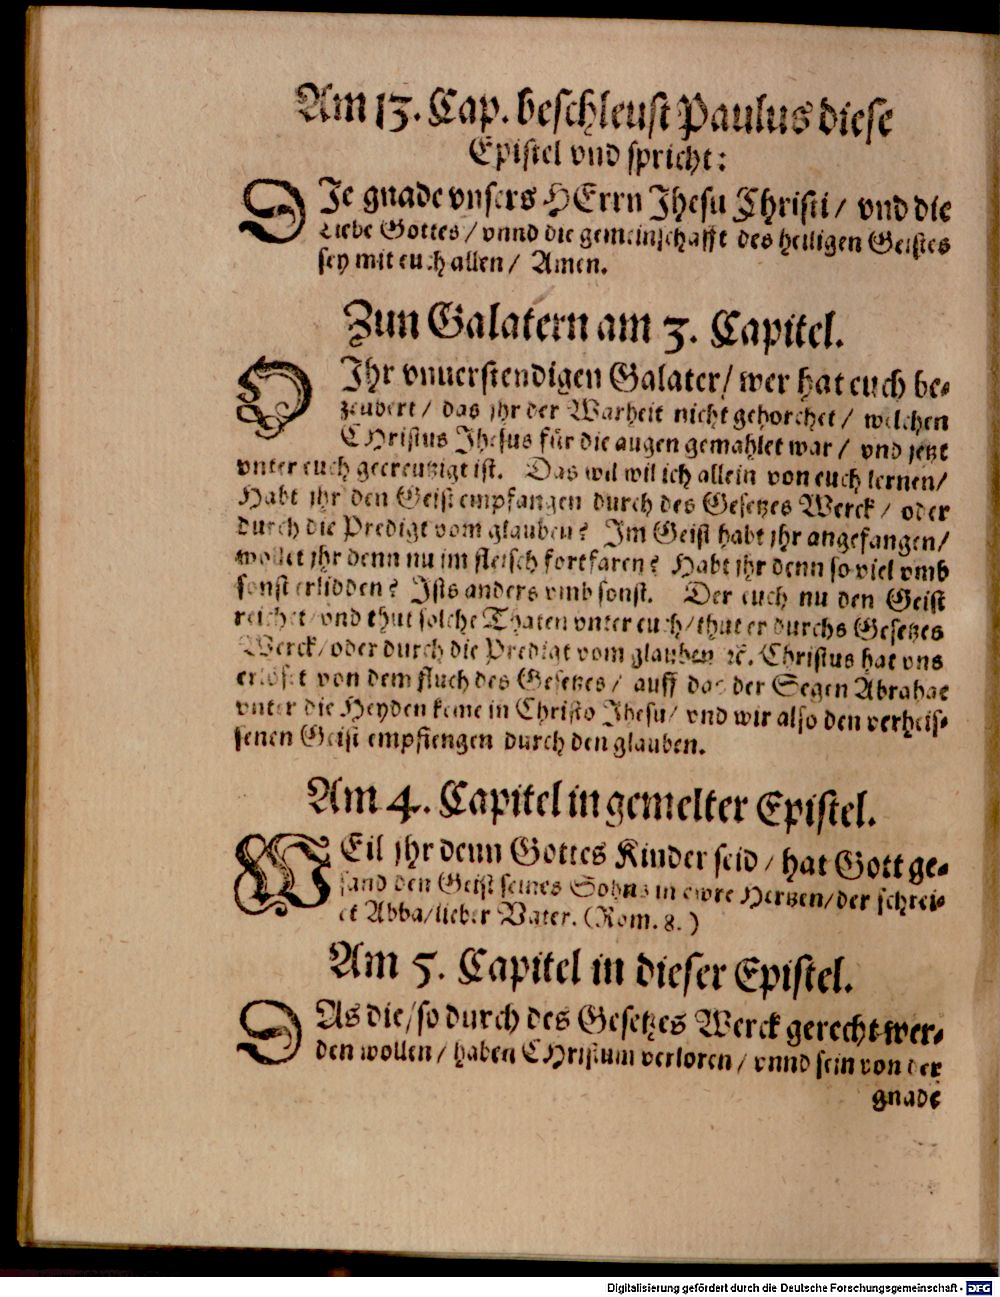 Am 13. Cap. beschleust Paulus diese
Epistel vnd spricht:
DIe gnade vnsers HErrn Jhesu Christi / vnd die
Liebe Gottes / vnnd die gemeinschafft des heiligen Geistes
sey mit euch allen / Amen.
Zun Galatern am 3. Capitel.
O Jhr vnuerstendigen Galater / wer hat euch be-
zeubert / das jhr der Warheit nicht gehorchet / welchen
CHristus Jhesus für die augen gemahlet war / vnd jetzt
vnter euch gecreutzigt ist. Das wil wil ich allein von euch lernen /
Habt jhr den Geist empfangen durch des Gesetzes Werck / oder
durch die Predigt vom glauben? Im Geist habt jhr angefangen /
wollet jhr denn nu im fleisch fortfaren? Habt jhr denn so viel vmb
sonst erlidden? Ists anders vmb sonst. Der euch nu den Geist
reichet / vnd thut solche Thaten vnter euch / thut er durchs Gesetzes
Werck / oder durch die Predigt vom glauben ꝛc. Christus hat vns
erlöset von dem fluch des Gesetzes / auff das der Segen Abrahae
vnter die Heyden keme in Christo Jhesu / vnd wir also den verheis-
senen Geist empfiengen durch den glauben.
Am 4. Capitel in gemelter Epistel.
WEil jhr denn Gottes Kinder seid / hat Gott ge-
sand den Geist seines Sohns in ewre Hertzen / der schrei-
et Abba / lieber Vater. (Rom. 8.)
Am 5. Capitel in dieser Epistel.
DAs die / so durch des Gesetzes Werck gerecht wer-
den wollen / haben CHristum verloren / vnnd sein von der
gnade
Digitalisierung gefördert durch die Deutsche Forschungsgemeinschaft - DFG